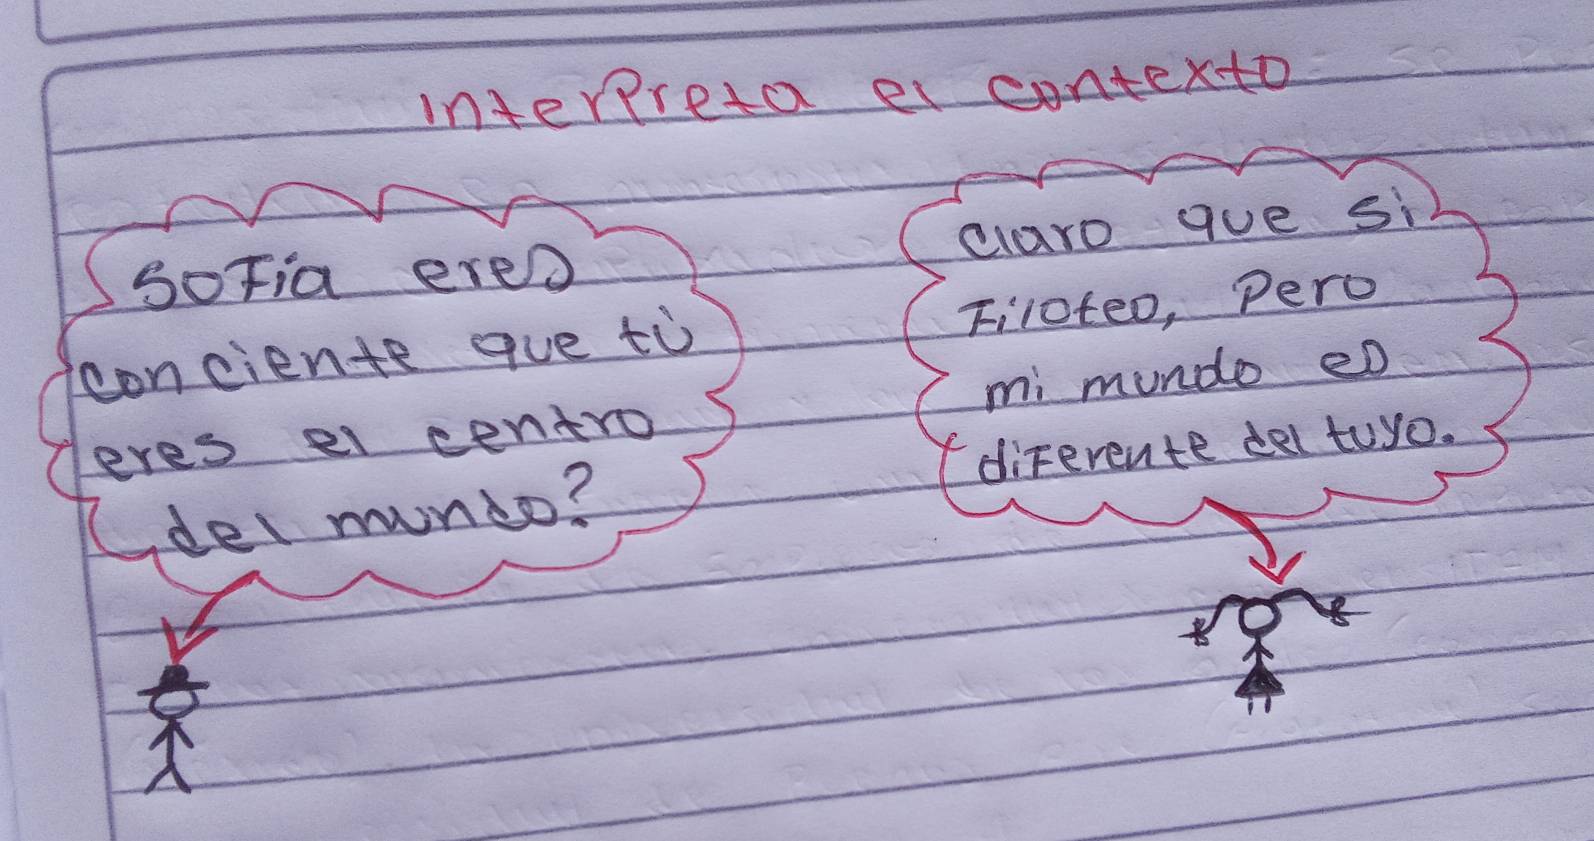 Interpreta el contexto
Sofía eres
conciente que tú
eres el centro
del mundo?
Claro que si
Filoteo, Pero
mi mundo es
diferente del tuyo.